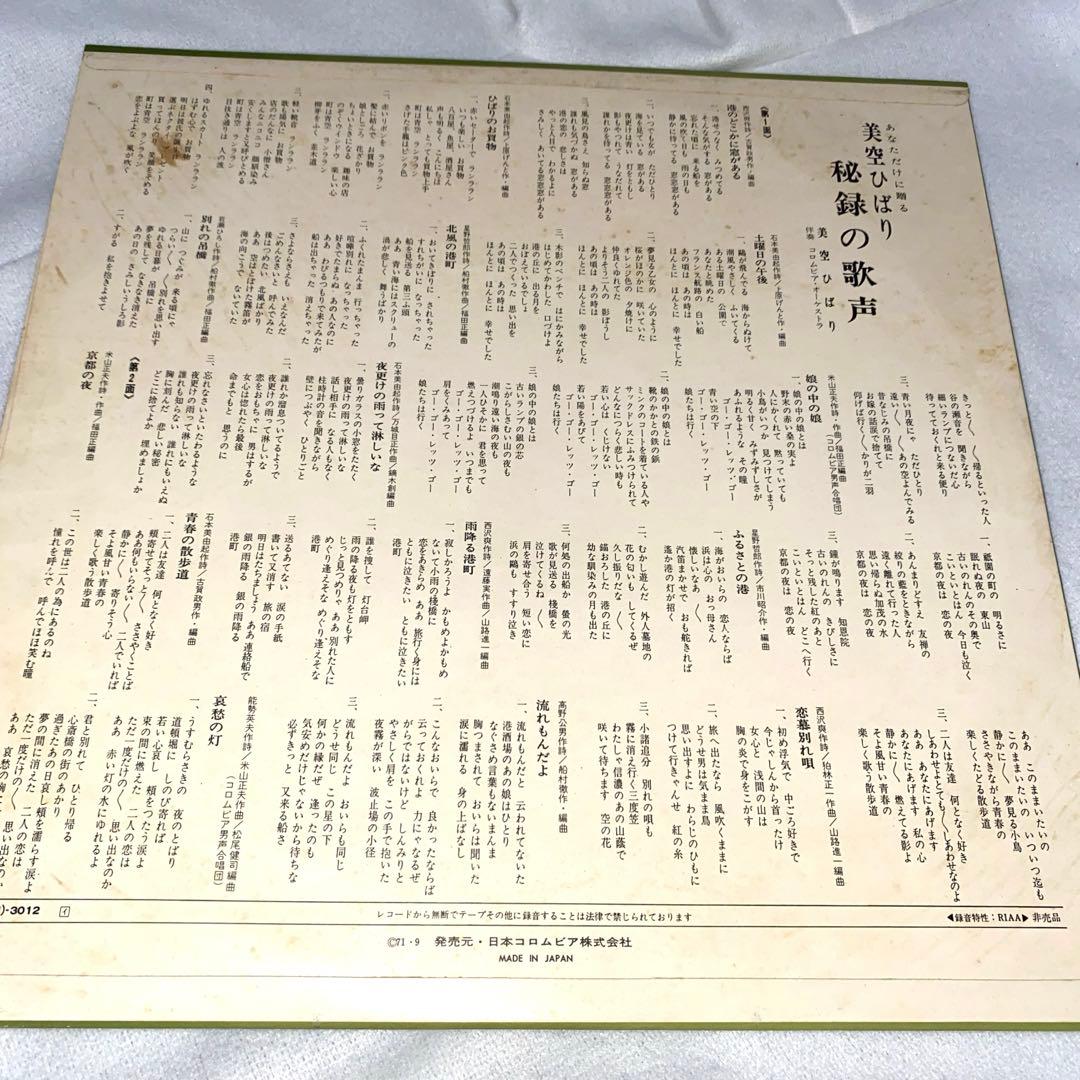 あなただけに贈る
美空ひばり
秘録の歌声
美空ひばり
伴奏 コロムビア・オーケストラ
《第1面》
港のどこかに窓がある
西沢爽作詩／古賀政男作・編曲
一、港せつなく みつめてる
そんな気がする 窓がある
忘れた頃に 来る船を
風の吹く日も 雨の日も
静かに待ってる 窓がある
誰れかを待ってる 窓窓窓がある
二、いつでも女が ただひとり
海を見ている 窓がある
夜更けは青い 灯をともし
誰れかを待ってる 窓窓窓がある
三、風見の鳥さえ 知らぬ窓
誰れも気づかぬ 窓がある
港の恋の 悲しさは
やっと人目で わかるよに
さみしくあいてる 窓窓窓がある
ひばりのお買物
石本美由起作詩／上原げんと作・編曲
一、赤いセーターで ランラララン
いつも楽しい お買物
八百屋、魚屋、酒屋さん
声も明るく こんにちは
私しゃ とっても買物上手
さげた手籠はピンク色
町は青空 ランラララン
二、赤いリボンを ランラララン
髪に結んで お買物
娘としごろ 花ざかり
ちょいと気になる 趣味の店
のぞくウィンドウ 楽しい心
柳芽をふく 並木道
町は青空 ランラララン
三、軽い靴音 ランラララン
歌も陽気に お買物
店のだんなに 小僧さん
みんなニコニコ 顔馴染み
安くしますと又呼びとめる
目抜き通りは 人の波
町は青空 ランラララン
四、ゆれるスカート ランラララン
はずむ心で お買物
明日は彼氏の誕生日
選ぶネクタイ プレゼント
買ってほんのり 笑顔をそめる
町は青空 ランラララン
恋をよぶよな 風が吹く
土曜日の午後
石本美由起作詩／上原げんと作・編曲
一、鴎が飛んでる 海からぬけて
潮風やさしく ふいてくる
ある土曜日の 公園で
あなたと眺めた 白い船
フランス航路の
あの頃は あの時は
ほんとに ほんとに 幸せでした
二、夢見る乙女の 心のように
桜がほのかに 咲いていた
オレンジ色の 夕焼けに
仲良くゆれてた
そよそう二人の 影ぼうし
あの頃は あの時は
ほんとに ほんとに 幸せでした
三、木影のベンチで はにかみながら
はじめてかわした 口づけよ
港の丘に 出る月を
おぼえているでしょ
二人でつくった 思い出を
あの頃は あの時は
ほんとに ほんとに 幸せでした
北風の港町
星野哲郎作詩／船村徹作曲／福田正編曲
一、おいてきぼりに されちゃった
すれちがいに なっちゃった
船を見送る 第三ふ頭
ああ 青い海にはスクリューの
渦が悲しく 舞うばかり
二、ふくれたまんま 行っちゃった
喧嘩別れに なっちゃった
好きでたまらぬ あの人なのに
ああ わびるつもりで来てみたが
船は出ちゃった 消えちゃった
三、さよならさえも いえなんだ
ごめんなさいと 呼んでみた
後はつめたい 北風ばかり
ああ 空とぼけた霧笛が
海の向こうで ないていた
別れの吊橋
岩瀬ひろし作詩／船村徹作曲／福田正編曲
一、山に つたみが 来る頃にゃ
つらい 別れを思い出す
ゆれる日暮が 吊橋に
夢を残して なきなき消えた
あの日の さみしいうしろ影
二、すがる 私を抱きよせて
きっと〱 帰るといった人
谷の瀬音を 聞きながら
細いランプにつないだ心
待っておくれた来る便り
三、青い月夜にゃ ただひとり
泣いて〱あの空よんでみる
昔なじみの吊橋に
お嫁の話涙で捨てて
仰げば行く〱かりが二羽
娘の中の娘
米山正夫作詩・作曲／福田正編曲
（コロムビア男声合唱団）
一、娘の中の娘とは
野末の赤い桑の実よ
人にかくれて 黙っていても
小鳥がいつか 見つけてしまう
明るく甘く みずみずしさが
あふれるような その瞳
青い空の下
ゴー・ゴー・レッツ・ゴー
娘たちは行く
二、娘の中の娘とは
靴のかかとの鉄の鋲
ミンクのコートを着ている人や
サックドレスにふみつけられて
どんなにつらく悲しい時も
若い心は くじけない
若い陽をあびて
ゴー・ゴー・レッツ・ゴー
娘たちは行く
三、娘の中の娘とは
古いランプの銀の芯
こがらしさむい山の夜も
潮鳴り遠い海の夜も
一人ひそかに 君を思って
燃えつづけるよ いつまでも
肩をくみあって
ゴー・ゴー・レッツ・ゴー
娘たちは行く
夜更けの雨って淋しいな
石本美由起作詩／万城目正作曲／鏑木創編曲
一、曇りガラスの小窓をたたく
夜更けの雨って淋しいな
話し相手に なる人もなく
柱時計の音を聞きながら
壁につぶやく ひとりごと
二、誰れか溜息ついてるようで
夜更けの雨って淋しいな
恋をおもちゃに 男はするが
女心は惚れたら最後
命までもと 思うのに
三、忘れなさいといたわるような
夜更けの雨って淋しいな
誰れも知らない 誰れにもいえぬ
胸に刻んだ 悲しい秘密
どこに捨てよか 埋めましょか
《第2面》
京都の夜
米山正夫作詩・作曲／福田正編曲
一、祇園の町の 明るさに
眠れぬ夜の 東山
古いのれんのその奥で
こいととはん 今日も泣く
京都の夜は 恋の夜
二、あんまりどすえ 友禅の
絞りの藍をときながら
遠く離れて行った人
思い帰らぬ加茂の水
京都の夜は 恋の夜
三、鐘が鳴ります 知恩院
古いのれんの きびしさに
そっと残した紅のあと
こいととはん どこへ行く
京都の夜は 恋の夜
ふるさとの港
星野哲郎作詩／市川昭介作・編曲
一、海がおいらの 恋人ならば
浜は心の お っ母さん
懐しいなあ
汽笛まかせで おも舵きれば
遥か港の灯が招く
二、むかし遊んだ 外人墓地の
花の匂いも してくるぜ
久し振りだな
錨おろした 港の丘に
幼な馴染みの月も出た
三、何処の出船か 螢の光
歌が聞える 桟橋を
泣けてくるね
肩を寄せ合い 短い恋に
浜の鴎も すすり泣き
雨降る港町
西沢爽作詩／遠藤実作曲／山路進一編曲
一、寂しかろうよ かもめよかもめ
ないて小雨の桟橋に
恋をあきらめ ああ 旅行く身には
ともに泣きたい ともに泣きたい
港町
二、誰を捜して 灯台岬
雨の降る夜も灯をともす
じっと見つめりゃ ああ 別れた人に
めぐり逢えそな めぐり逢えそな
港町
三、送るあてない 涙の手紙
書いて又消す 旅の宿
明日はたちましょう ああ 連絡船で
銀の雨降る 銀の雨降る
港町
青春の散歩道
石本美由起作詩／古賀政男作・編曲
一、二人は友達 何となく好き
頬寄せてそっと〱 ささやくことば
ああ何もいらない〱 二人でいれば
静かに〱 寄りそう心
そよ風甘い青春の
楽しく歌う散歩道
二、この世は二人の為にあるのね
憧れを呼んで 呼んでほほ笑む瞳
ああ このままいたいの
このままいたいの いついつ迄も
静かに〱 夢見る小鳥
ささやきながら青春の
楽しくたどる散歩道
三、二人は友達 何となく好き
しあわせよとても〱しあわせなのよ
ああ あなたにあげます
あなたにあげます 私の心
静かに〱 燃えてる影よ
そよ風甘い青春の
楽しく歌う散歩道
恋慕別れ唄
西沢爽作詩／狛林正一作曲／山路進一編曲
一、初め浮気で 中ごろ好きで
今じゃしんから首ったけ
女心と 浅間の山は
胸の炎で身をこがす
二、旅へ出たなら 風吹くままに
どうせ男は気まま鳥
思い出すよに わらじのひもに
つけて行きゃんせ 紅の糸
三、小諸追分 別れの唄も
霧に消え行く三度笠
わたしゃ信濃のあの山蔭で
咲いて待ちます 空の花
流れもんだよ
高野公男作詩／船村徹作・編曲
一、流れもんだと 云われてないた
港酒場のあの娘はひとり
なぐさめ言葉もないまんま
胸つまされて おいらは聞いた
涙に濡れる 身の上ばなし
二、こんなおいらで 良かったならば
云っておくれよ 力になるぜ
がらではないけど しんみりと
やさしく肩を この手で抱いた
夜霧が深い 波止場の小径
三、流れもんだよ おいらも同じ
どうせ同じ この星の下
何かの縁だぜ 逢ったのも
気安めだけじゃないから待ちな
必ずきっと 又来る船さ
哀愁の灯
能勢英夫作詩／米山正夫作曲／松尾健司編曲
（コロムビア男声合唱団）
一、うすむらさきの 夜のとばり
道頓堀に しのび寄れば
若い心哀し 頬をつたう涙よ
束の間に燃えた 二人の恋は
ただ一度だけの〱 思い出なのか
ああ 赤い灯の水にゆれるよ
二、君と別れて ひとり帰る
心斎橋の 街のあかり
過ぎたあの日哀し頬を濡らす涙よ
夢の間に消えた 二人の恋は
ただ一度だけの〱 思い出なのか
ああ 哀愁の胸に
)-3012
イ
レコードから無断でテープその他に録音することは法律で禁じられております
◀録音特性：RIAA▶ 非売品
Ⓒ71・9 発売元・日本コロムビア株式会社
MADE IN JAPAN